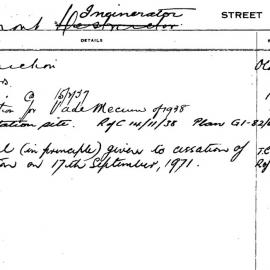 Incinerator
STREET
ront Destructor
DETAILS
uction
rs
@ 15/7/37
tion for Vade Mecum of 1938
tation site. RofC 14/11/38 Plan G1-82/
l (in principle) given to cessation of
on on 17th September, 1971.
T.C.
Rof